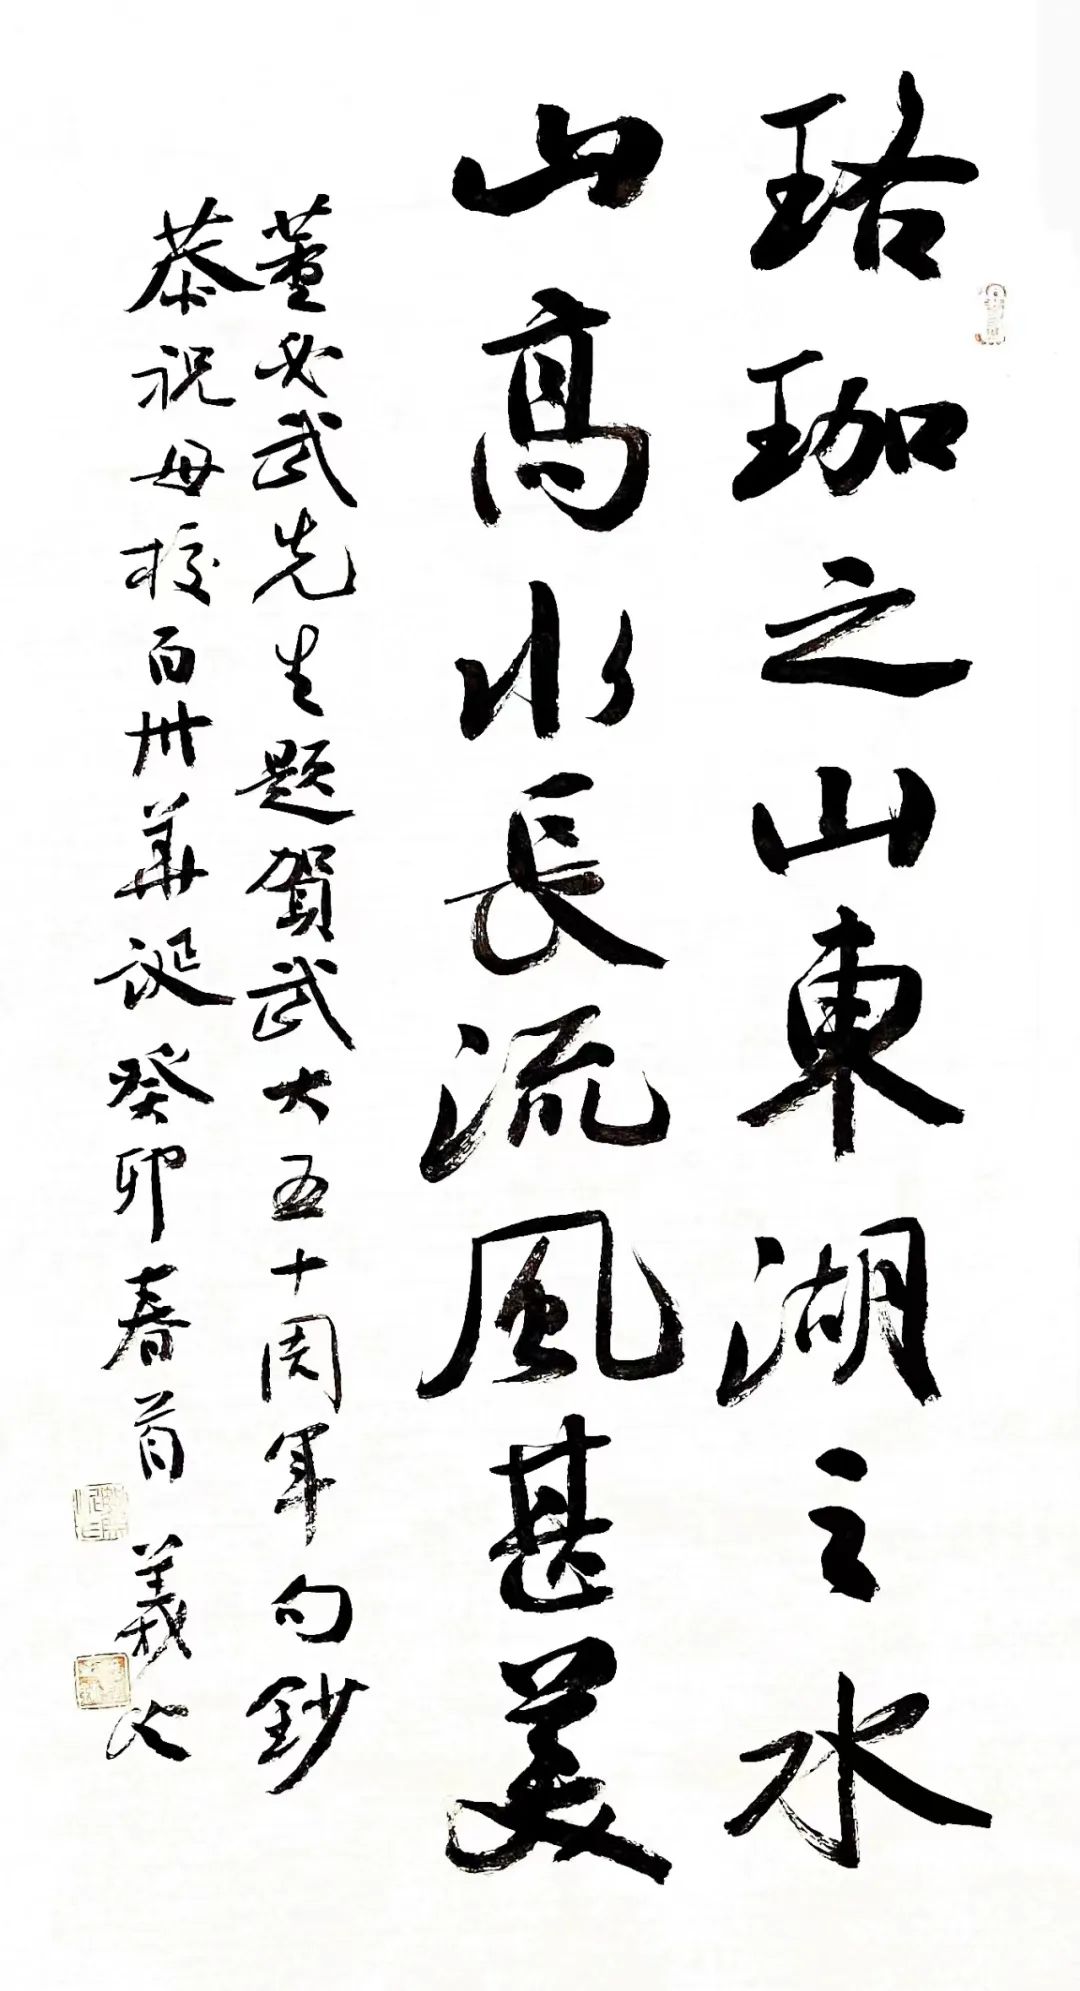 珞珈之山東湖之水
山高水長流風甚美
董必武先生題賀武大五十周年句鈔
恭祝母校百卅華誕癸卯春首 義